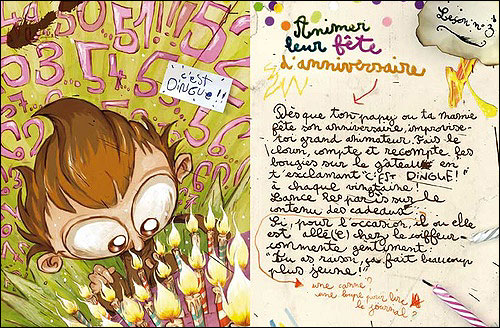 50
51
52
53
54
55
56
57
C'est
DiNGUE!!
Leçon n°3
Animer
leur fête
d'anniversaire
Dès que ton papy ou ta mamie
fête son anniversaire, improvise-
toi grand animateur. Fais le
clown, compte et recompte les
bougies sur le gâteau en
t'exclamant "C'EST DiNGUE!"
à chaque vingtaine!
Lance des paris sur le
contenu des cadeaux.
Si, pour l'occasion, il ou elle
est allé(e) chez le coiffeur
commente gentiment:
"Tu as raison, ça fait beaucoup
plus jeune!"
une canne?
une loupe pour lire
le journal?